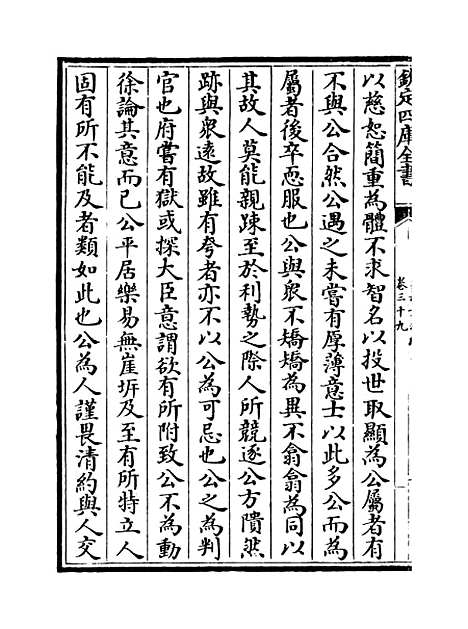 欽定四庫全書
卷三十九
以慈恕簡重為體不求智名以投世取顯為公屬者有
不與公合然公遇之未嘗有厚薄意士以此多公而為
屬者後卒悉服也公與眾不矯矯為異不翕翕為同以
其故人莫能親踈至於利勢之際人所競逐公方隤然
跡與衆遠故雖有夸者亦不以公為可忌也公之為判
官也府嘗有獄或探大臣意謂欲有所附致公不為動
徐論其意而已公平居樂易無崖岸及至有所特立人
固有所不能及者類如此也公為人謹畏清約與人交